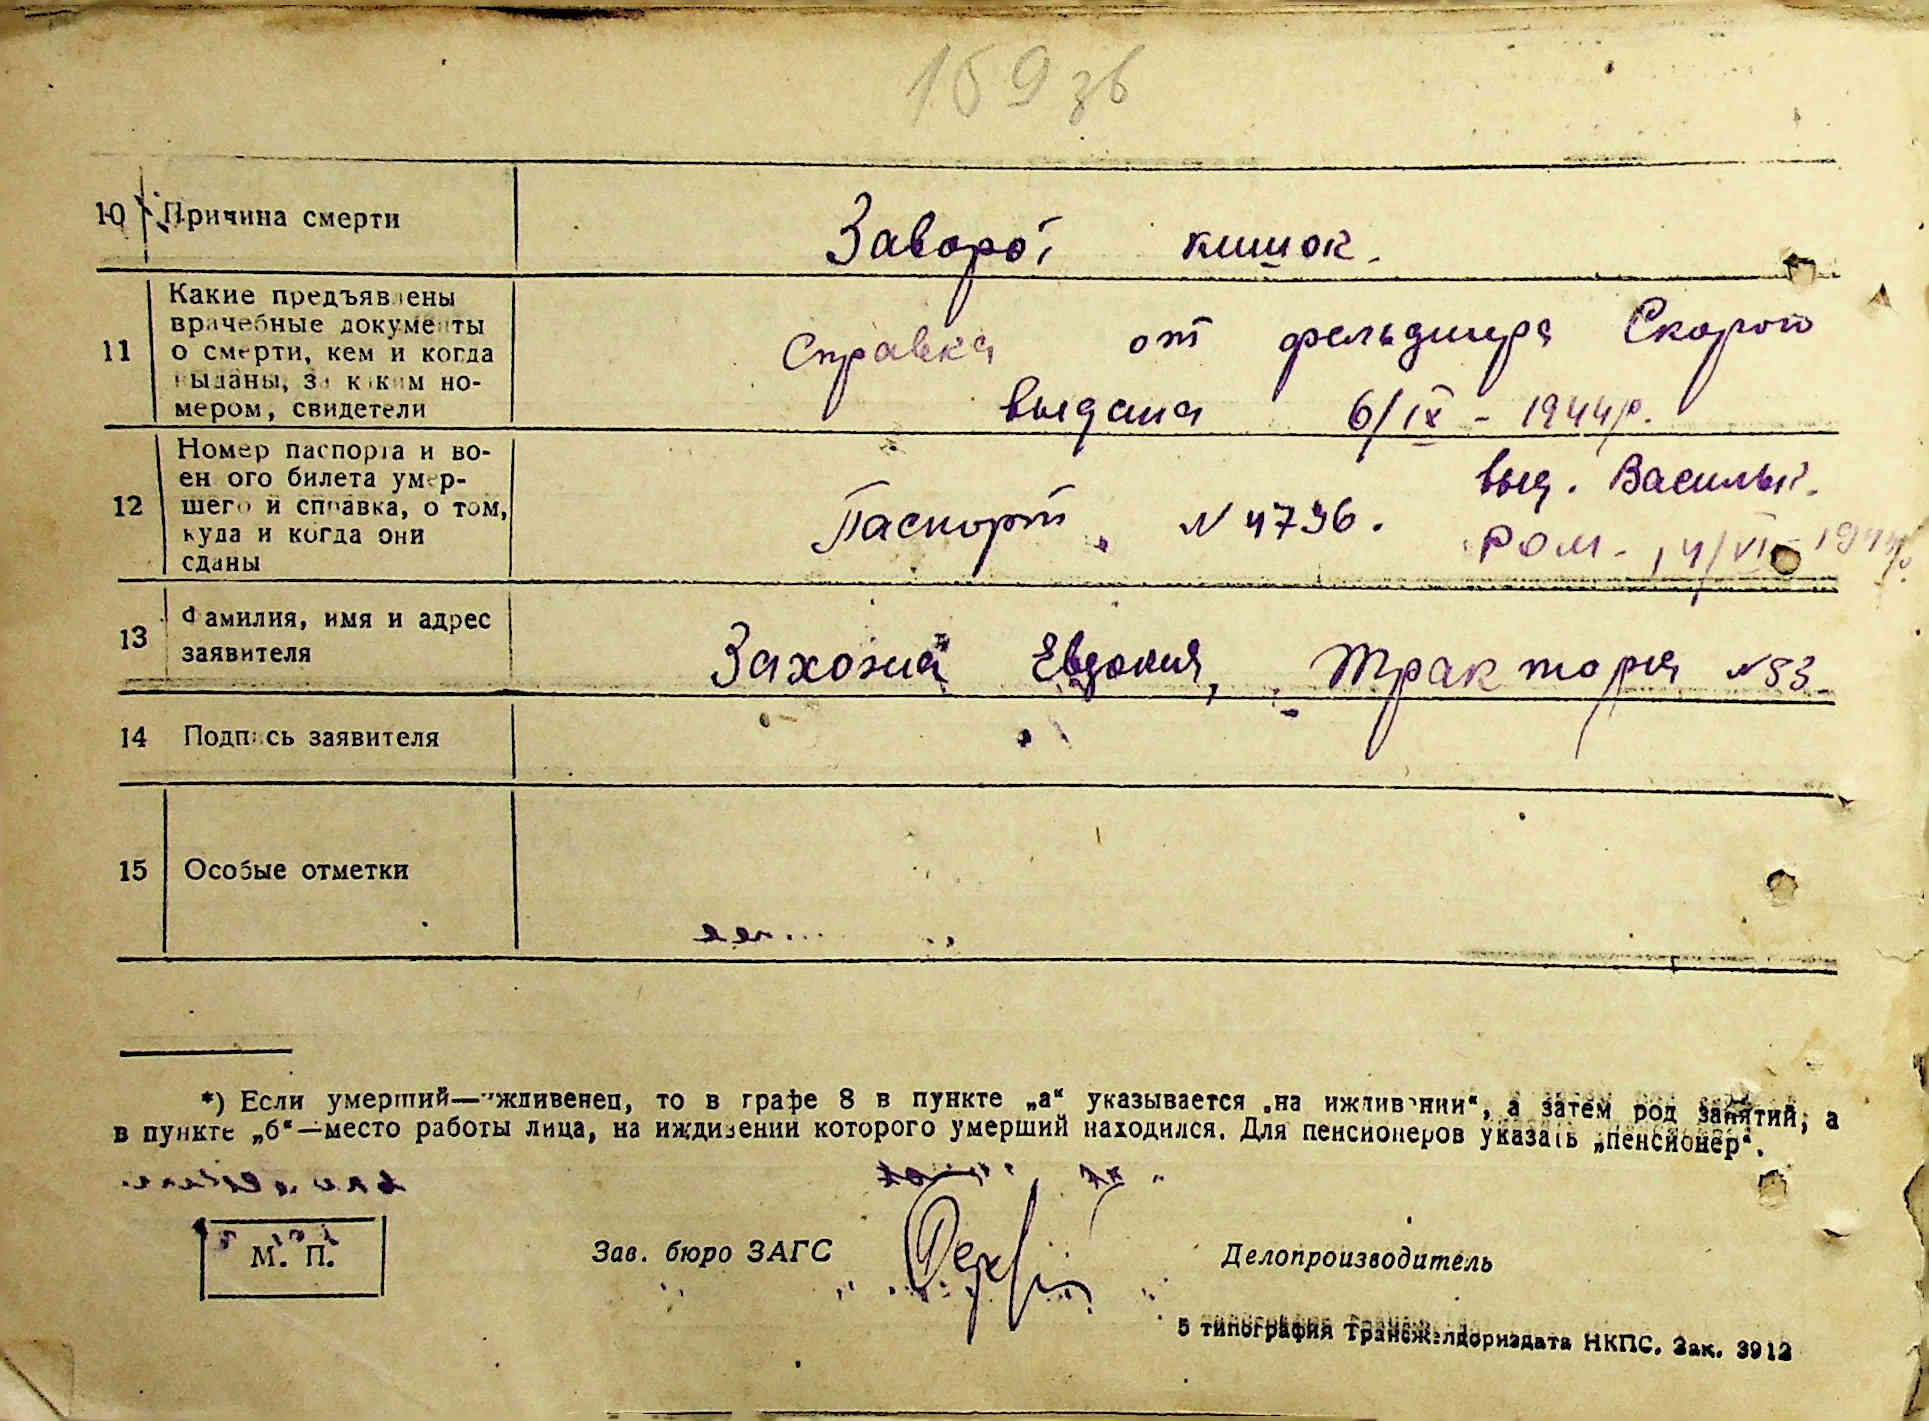 159 зв
10 Причина смерти
Заворот кишок.
11 Какие предъявлены
врачебные документы
о смерти, кем и когда
выданы, за каким но-
мером, свидетели
Справка от фельдшера Скорой
выдана 6/IX - 1944р.
12 Номер паспорта и во-
енного билета умер-
шего и справка, о том,
куда и когда они
сданы
Паспорт N 4736. выд. Васильк.
РОМ - 14/VI - 1944р.
13 Фамилия, имя и адрес
заявителя
Евдокия, Тракторна №53
14 Подпись заявителя
15 Особые отметки
*) Если умерший—иждивенец, то в графе 8 в пункте „а“ указывается „на иждивении“, а затем род занятий, а
в пункте „б“—место работы лица, на иждивении которого умерший находился. Для пенсионеров указать „пенсионер“.
М. П.
Зав. бюро ЗАГС
Делопроизводитель
5 типография Трансжелдориздата НКПС. Зак. 3912